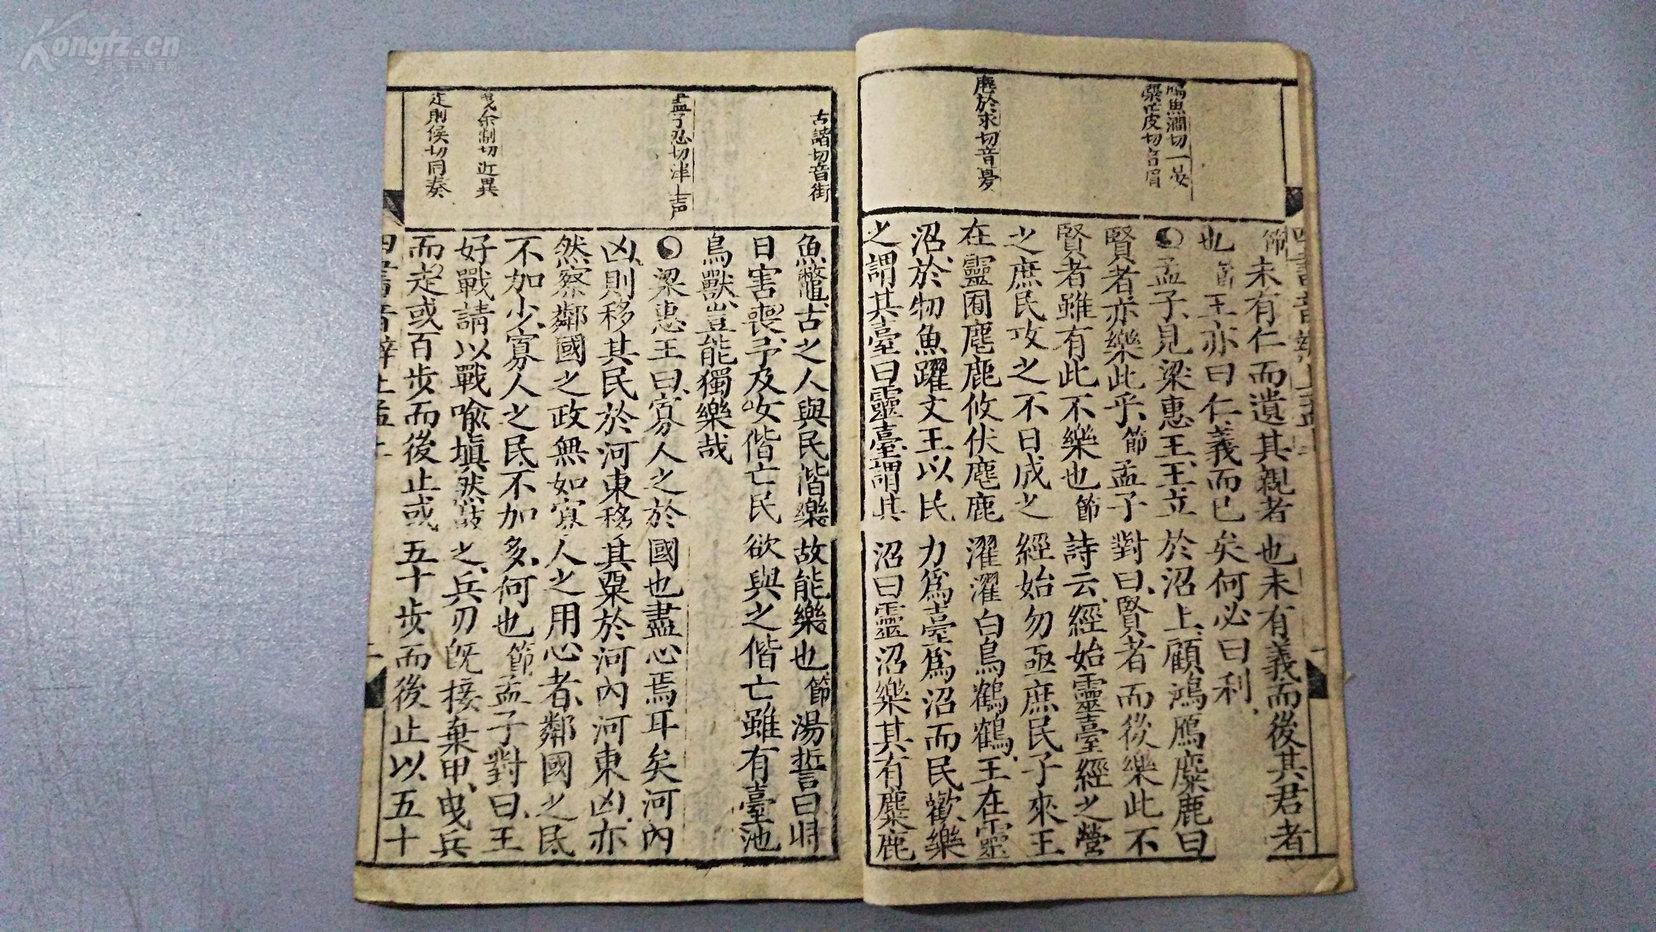 鳴魚澗切一晏
麋芒皮切音眉
麀於求切音憂
節未有仁而遺其親者也未有義而後其君者
也節王亦曰仁義而已矣何必曰利
孟子見梁惠王王立於沼上顧鴻鴈麋鹿曰
賢者亦樂此乎節孟子對曰賢者而後樂此不
賢者雖有此不樂也節詩云經始靈臺經之營
之庶民攻之不日成之經始勿亟庶民子來王
在靈囿麀鹿攸伏麀鹿濯濯白鳥鶴鶴王在靈
沼於牣魚躍文王以民力為臺為沼而民歡樂
之謂其臺曰靈臺謂其沼曰靈沼樂其有麋鹿
古諧切音街
盡子忍切津上声
曳余制切近異
走則侯切同奏
魚鱉古之人與民偕樂故能樂也節湯誓曰時
日害喪予及女偕亡民欲與之偕亡雖有臺池
鳥獸豈能獨樂哉
梁惠王曰寡人之於國也盡心焉耳矣河內
凶則移其民於河東移其粟於河內河東凶亦
然察鄰國之政無如寡人之用心者鄰國之民
不加少寡人之民不加多何也節孟子對曰王
好戰請以戰喻填然鼓之兵刃既接棄甲曳兵
而走或百步而後止或五十步而後止以五十
Kongfz.cn